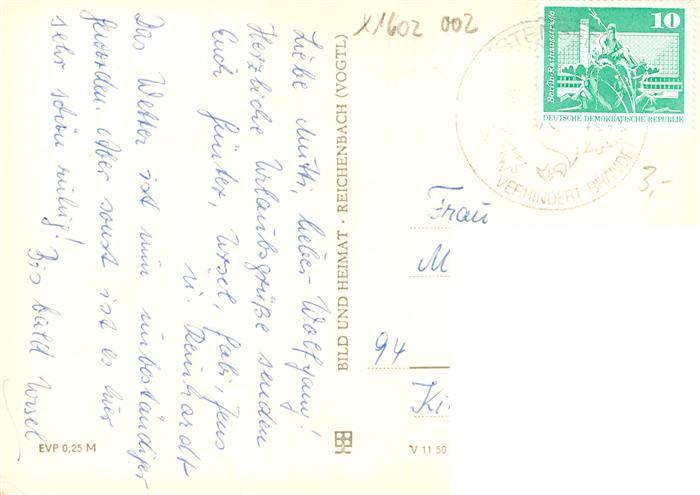 Liebe Mutti, lieber Wolfgang!
Herzliche Urlaubsgrüße senden
Euch Günter, Ursel, Gabi, Jens
u. Reinhardt
Das Wetter ist nun unbeständiger
geworden. Aber sonst ist es hier
sehr schön ruhig!
Bis bald Ursel
EVP 0,25 M
BILD UND HEIMAT · REICHENBACH (VOGTL)
V 11 50
X1602 002
10
Berlin, Rathausstraße
DEUTSCHE DEMOKRATISCHE REPUBLIK
VERHINDERT BRÄNDE
3,-
Frau
M
94